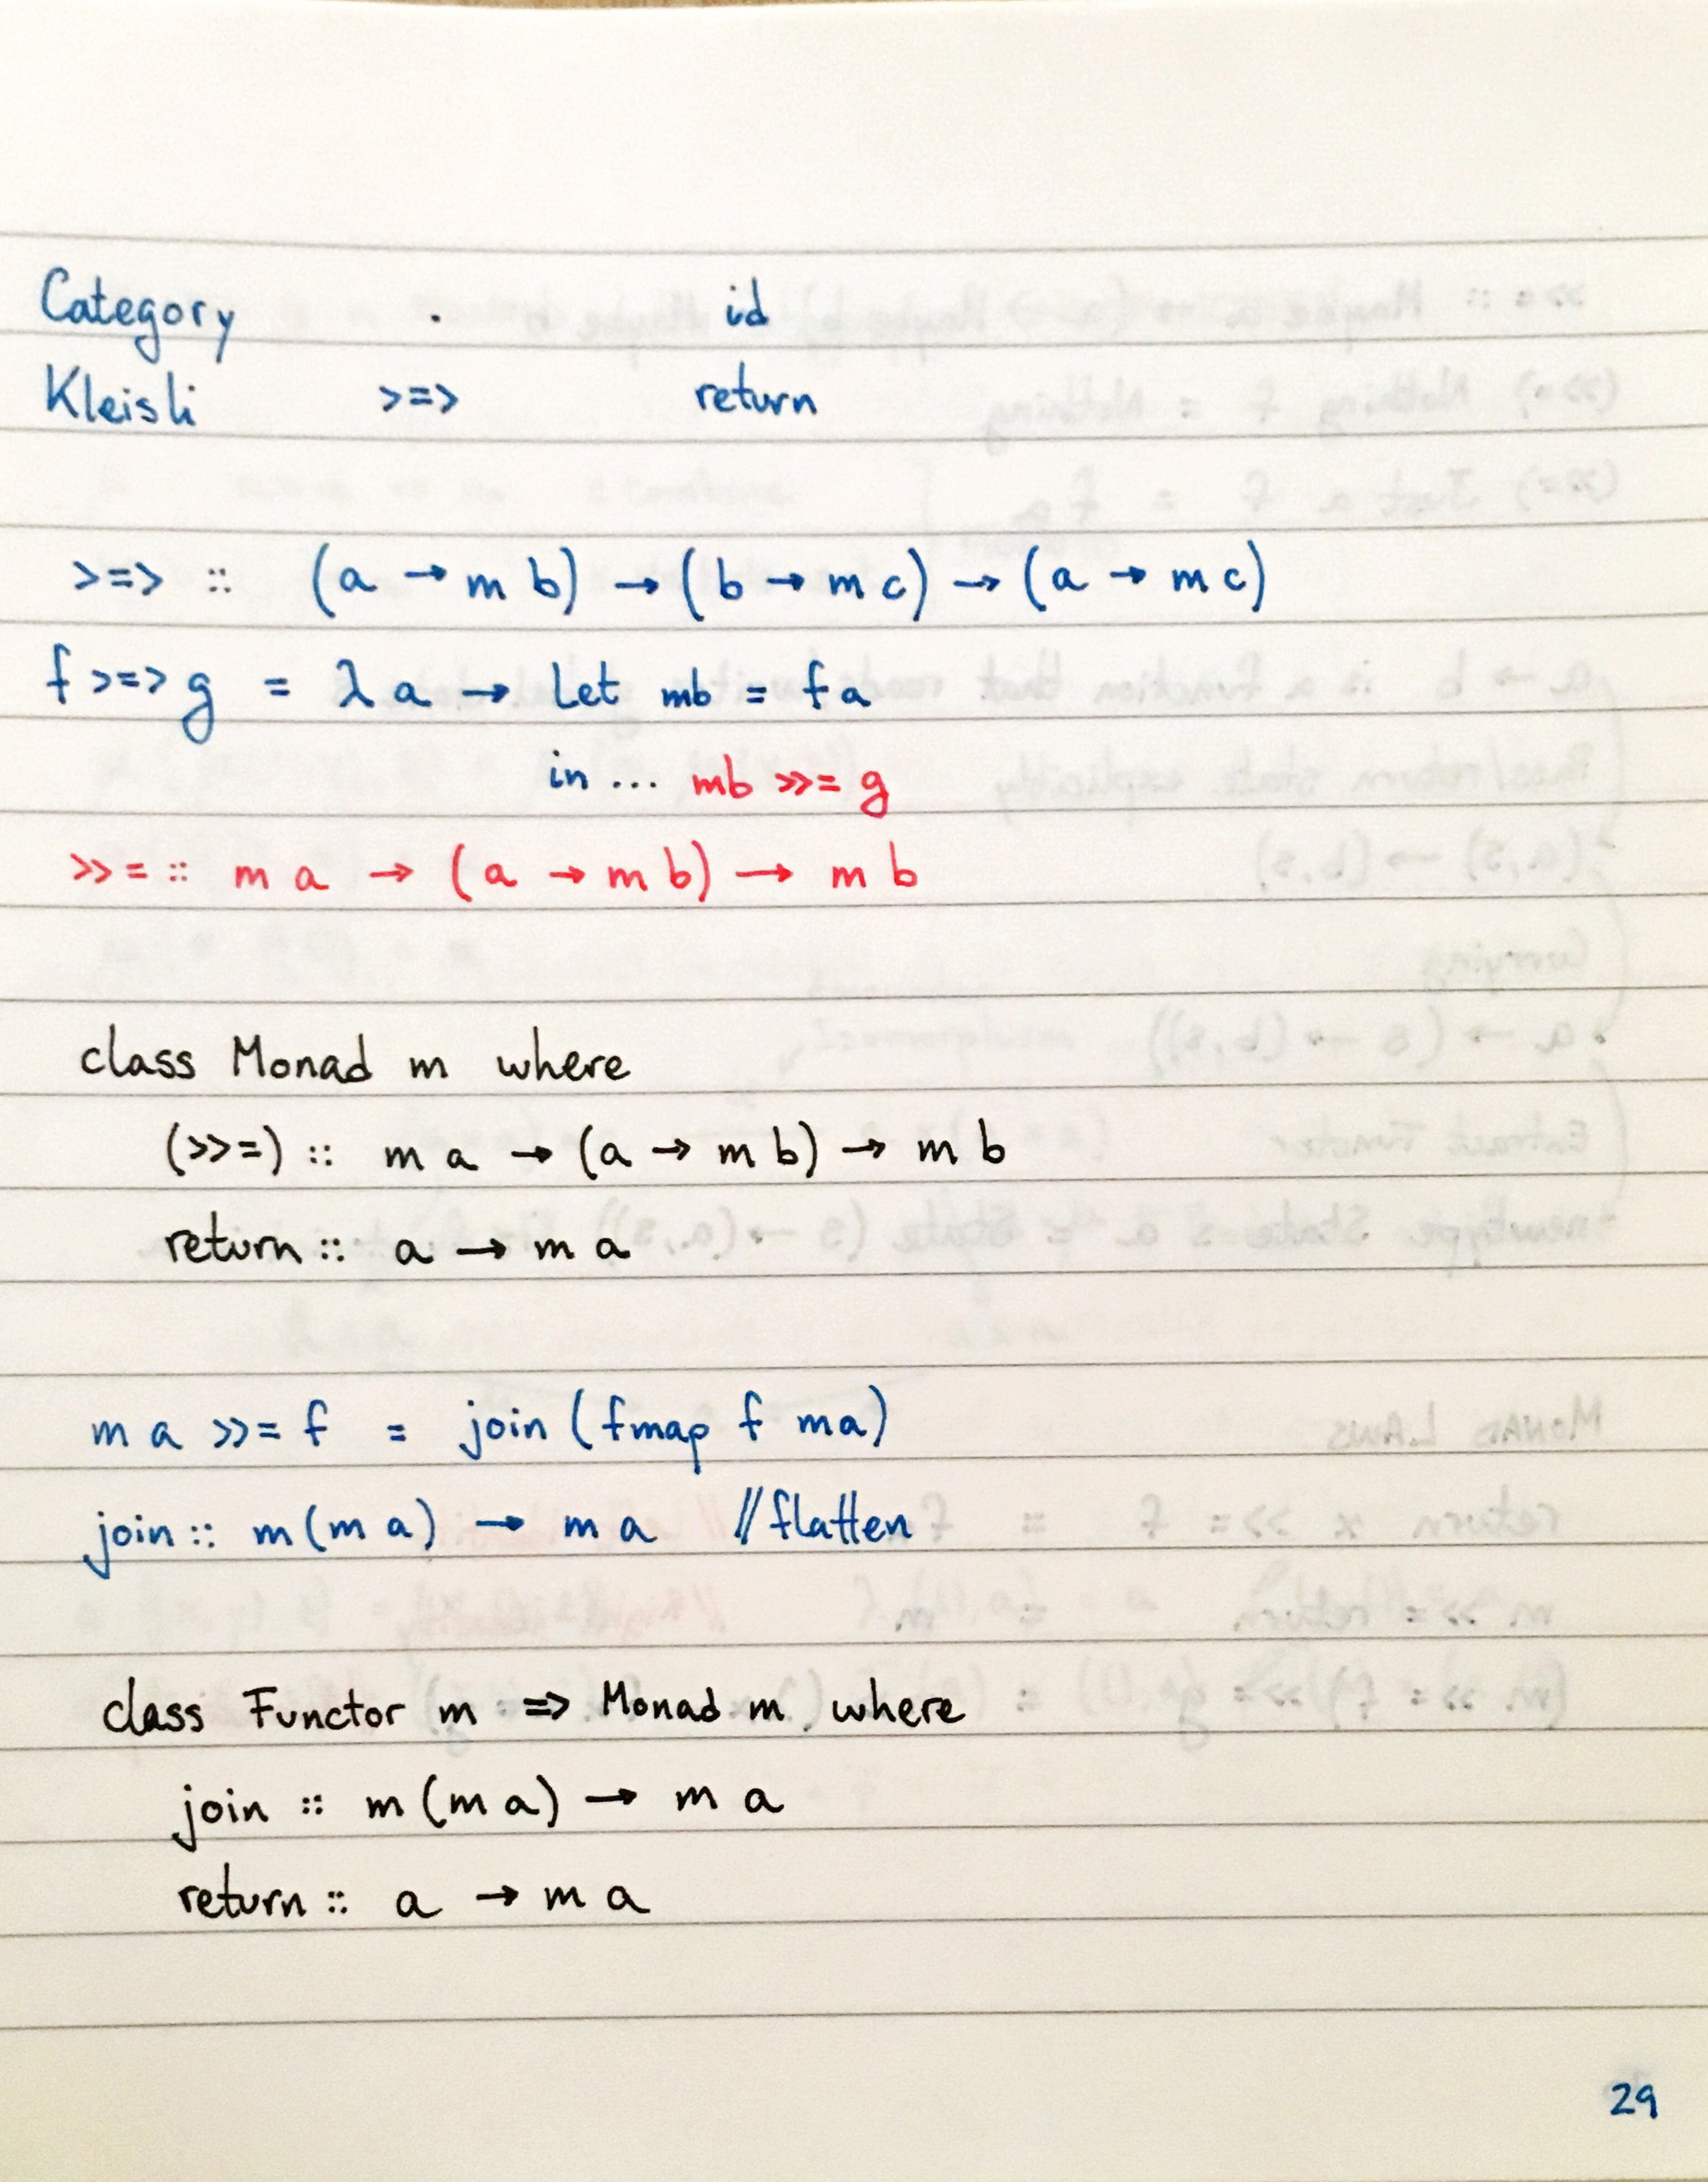 Category . id
Kleisli >=> return
>=> :: (a → m b) → (b → m c) → (a → m c)
f >=> g = λ a → let mb = f a
in ... mb >>= g
>>= :: m a → (a → m b) → m b
class Monad m where
(>>=) :: m a → (a → m b) → m b
return :: a → m a
m a >>= f = join (fmap f ma)
join :: m (m a) → m a // flatten
class Functor m => Monad m where
join :: m (m a) → m a
return :: a → m a
29